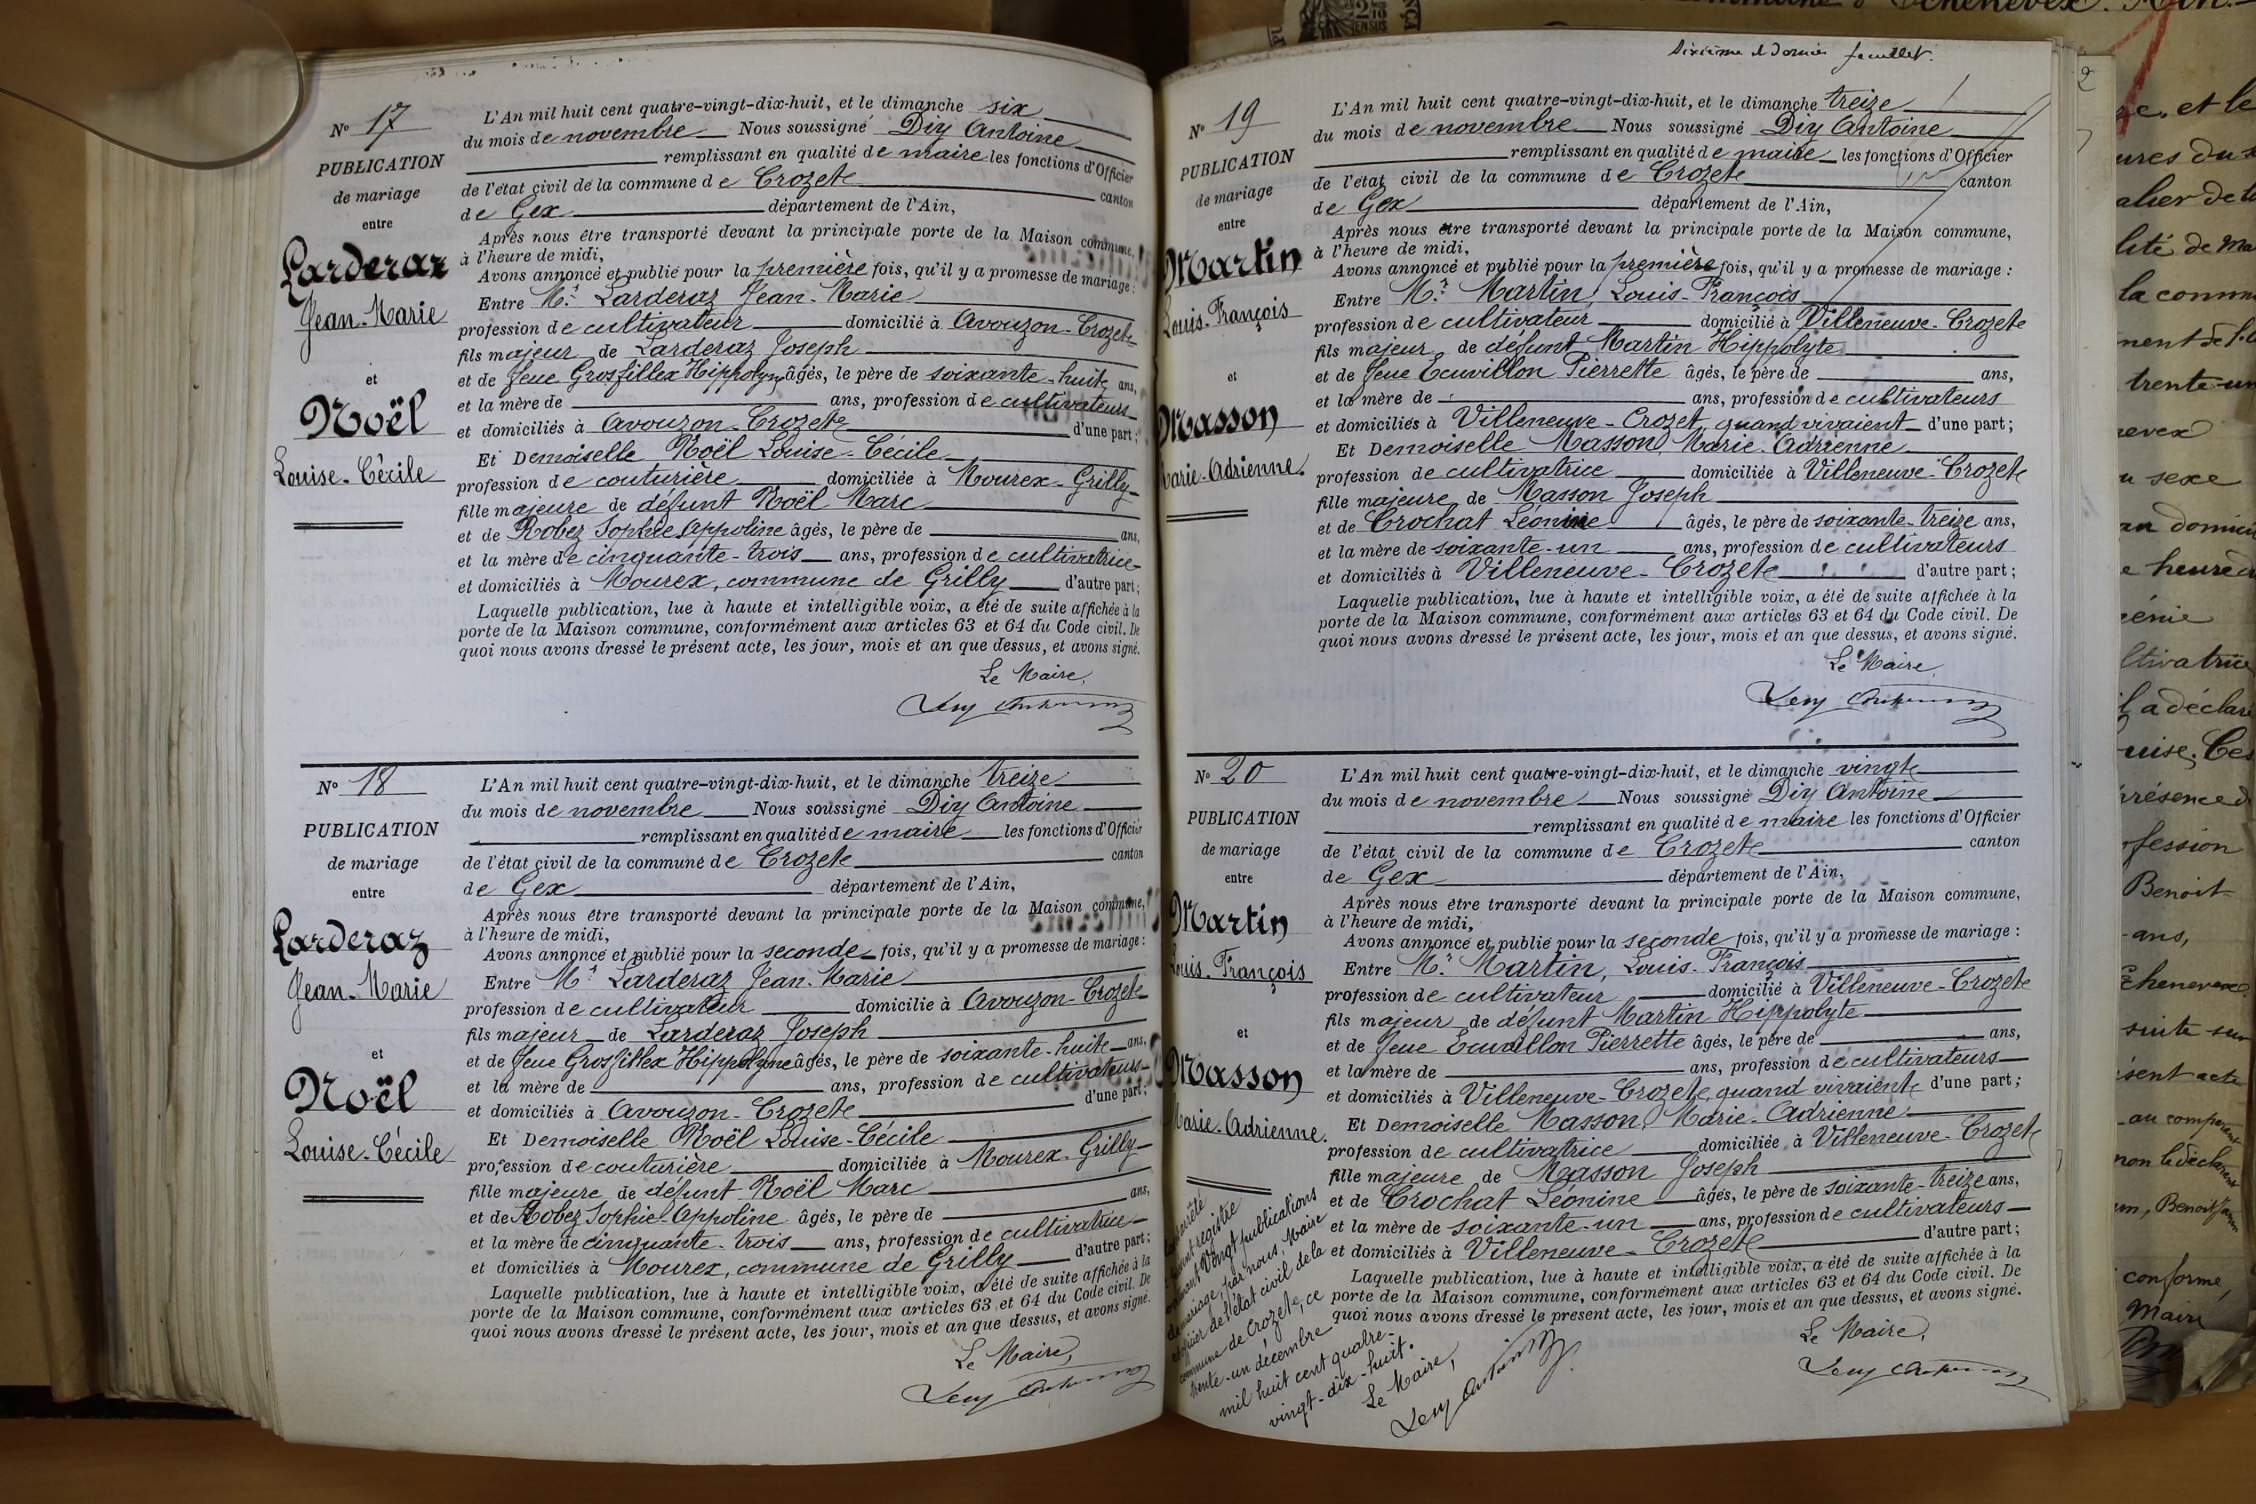 N° 17
PUBLICATION
de mariage
entre
Larderaz
Jean-Marie
et
Noël
Louise-Cécile
L'An mil huit cent quatre-vingt-dix-huit, et le dimanche six
du mois de novembre Nous soussigné Diy Antoine
remplissant en qualité de maire les fonctions d'Officier
de l'état civil de la commune de Crozet canton
de Gex département de l'Ain,
Après nous être transporté devant la principale porte de la Maison commune,
à l'heure de midi,
Avons annoncé et publié pour la première fois, qu'il y a promesse de mariage :
Entre Mr. Larderaz Jean-Marie
profession de cultivateur domicilié à Avouzon-Crozet
fils majeur de Larderaz Joseph
et de feue Grosfillex Hippolyne âgés, le père de soixante-huit ans,
et la mère de ans, profession de cultivateurs
et domiciliés à Avouzon-Crozet d'une part ;
Et Demoiselle Noël Louise-Cécile
profession de couturière domiciliée à Mourex-Grilly
fille majeure de défunt Noël Marc
et de Robez Sophie Appoline âgés, le père de ans,
et la mère de cinquante-trois ans, profession de cultivatrice
et domiciliés à Mourex, commune de Grilly d'autre part ;
Laquelle publication, lue à haute et intelligible voix, a été de suite affichée à la
porte de la Maison commune, conformément aux articles 63 et 64 du Code civil. De
quoi nous avons dressé le présent acte, les jour, mois et an que dessus, et avons signé.
Le Maire,
N° 18
PUBLICATION
de mariage
entre
Larderaz
Jean-Marie
et
Noël
Louise-Cécile
L'An mil huit cent quatre-vingt-dix-huit, et le dimanche treize
du mois de novembre Nous soussigné Diy Antoine
remplissant en qualité de maire les fonctions d'Officier
de l'état civil de la commune de Crozet canton
de Gex département de l'Ain,
Après nous être transporté devant la principale porte de la Maison commune,
à l'heure de midi,
Avons annoncé et publié pour la seconde fois, qu'il y a promesse de mariage :
Entre Mr. Larderaz Jean-Marie
profession de cultivateur domicilié à Avouzon-Crozet
fils majeur de Larderaz Joseph
et de feue Grosfillex Hippolyne âgés, le père de soixante-huit ans,
et la mère de ans, profession de cultivateurs
et domiciliés à Avouzon-Crozet d'une part ;
Et Demoiselle Noël Louise-Cécile
profession de couturière domiciliée à Mourex-Grilly
fille majeure de défunt Noël Marc
et de Robez Sophie-Appoline âgés, le père de ans,
et la mère de cinquante-trois ans, profession de cultivatrice
et domiciliés à Mourex, commune de Grilly d'autre part ;
Laquelle publication, lue à haute et intelligible voix, a été de suite affichée à la
porte de la Maison commune, conformément aux articles 63 et 64 du Code civil. De
quoi nous avons dressé le présent acte, les jour, mois et an que dessus, et avons signé.
Le Maire,
Dixième et dernier feuillet.
N° 19
PUBLICATION
de mariage
entre
Martin
Louis-François
et
Masson
Marie-Adrienne.
L'An mil huit cent quatre-vingt-dix-huit, et le dimanche treize
du mois de novembre Nous soussigné Diy Antoine
remplissant en qualité de maire les fonctions d'Officier
de l'état civil de la commune de Crozet canton
de Gex département de l'Ain,
Après nous être transporté devant la principale porte de la Maison commune,
à l'heure de midi,
Avons annoncé et publié pour la première fois, qu'il y a promesse de mariage :
Entre Mr. Martin, Louis-François
profession de cultivateur domicilié à Villeneuve-Crozet
fils majeur de défunt Martin Hippolyte
et de feue Ecuvillon Pierrette âgés, le père de ans,
et la mère de ans, profession de cultivateurs
et domiciliés à Villeneuve-Crozet, quand vivaient d'une part ;
Et Demoiselle Masson, Marie-Adrienne
profession de cultivatrice domiciliée à Villeneuve-Crozet
fille majeure de Masson Joseph
et de Crochat Léonine âgés, le père de soixante-treize ans,
et la mère de soixante-un ans, profession de cultivateurs
et domiciliés à Villeneuve-Crozet d'autre part ;
Laquelle publication, lue à haute et intelligible voix, a été de suite affichée à la
porte de la Maison commune, conformément aux articles 63 et 64 du Code civil. De
quoi nous avons dressé le présent acte, les jour, mois et an que dessus, et avons signé.
Le Maire,
N° 20
PUBLICATION
de mariage
entre
Martin
Louis-François
et
Masson
Marie-Adrienne.
L'An mil huit cent quatre-vingt-dix-huit, et le dimanche vingt
du mois de novembre Nous soussigné Diy Antoine
remplissant en qualité de maire les fonctions d'Officier
de l'état civil de la commune de Crozet canton
de Gex département de l'Ain,
Après nous être transporté devant la principale porte de la Maison commune,
à l'heure de midi,
Avons annoncé et publié pour la seconde fois, qu'il y a promesse de mariage :
Entre Mr. Martin, Louis-François
profession de cultivateur domicilié à Villeneuve-Crozet
fils majeur de défunt Martin Hippolyte
et de feue Ecuvillon Pierrette âgés, le père de ans,
et la mère de ans, profession de cultivateurs
et domiciliés à Villeneuve-Crozet, quand vivaient d'une part ;
Et Demoiselle Masson, Marie-Adrienne
profession de cultivatrice domiciliée à Villeneuve-Crozet
fille majeure de Masson Joseph
et de Crochat Léonine âgés, le père de soixante-treize ans,
et la mère de soixante-un ans, profession de cultivateurs
et domiciliés à Villeneuve-Crozet d'autre part ;
Laquelle publication, lue à haute et intelligible voix, a été de suite affichée à la
porte de la Maison commune, conformément aux articles 63 et 64 du Code civil. De
quoi nous avons dressé le présent acte, les jour, mois et an que dessus, et avons signé.
Le Maire,
arrêté
registre
vingt publications
par nous, Maire
officier de l'état civil de la
commune de Crozet, ce
trente-un décembre
mil huit cent quatre-
vingt-dix-huit.
Le Maire,
2
et le
lité de
la commu
trente-un
sexe
domici
heure
ltivatrice
a déclaré
présence
profession
Benoit
ans,
Echenevex
suite sur
acte
non le déclarant
Benoit
conforme,
Maire